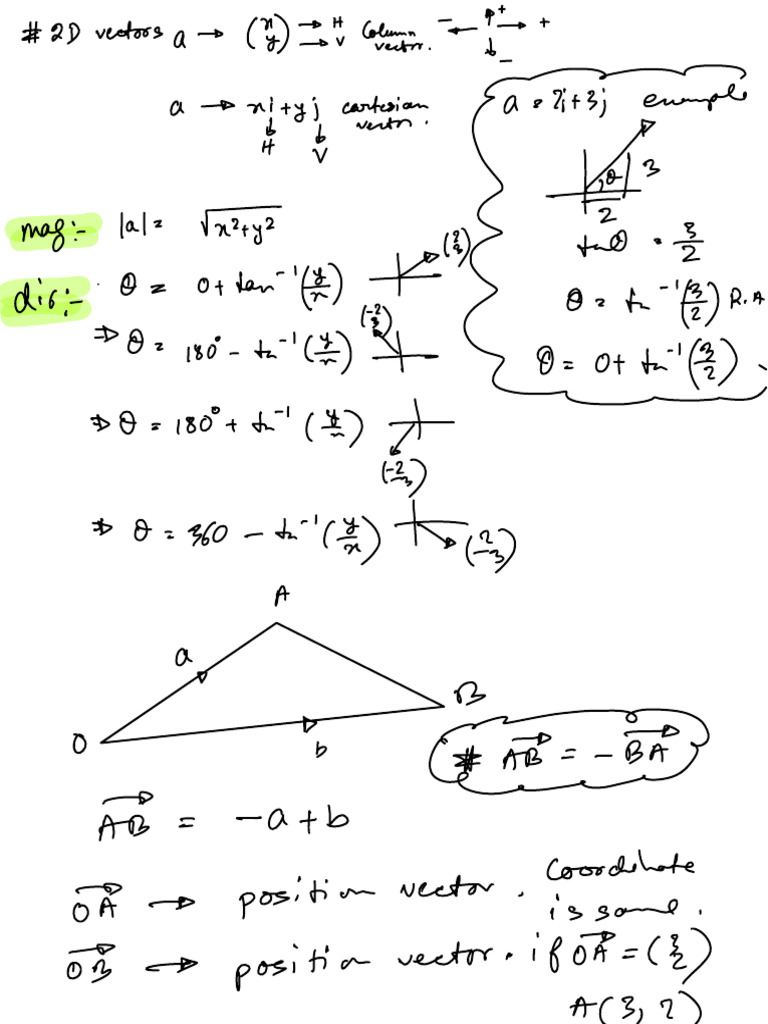 # 2D vectors a → (x y) → H → V Column vector. - + + -
a → xi + yj cartesian vector.
H V
a = 2i + 3j example
θ 3
2
tanθ = 3/2
θ = tn⁻¹(3/2) R.A
θ = 0 + tn⁻¹(3/2).
mag:- |a| = √x²+y²
dir:- θ = 0 + tan⁻¹(y/x) (2 3)
⇒ θ = 180° - tn⁻¹(y/x) (-2 3)
⇒ θ = 180° + tn⁻¹(y/x) (-2 -3)
⇒ θ = 360 - tn⁻¹(y/x) (2 -3)
A
a
B
O
b
# AB = - BA
AB = -a + b
OA → position vector. Coordinate is same.
OB → position vector. if OA = (3 2)
A(3, 2)